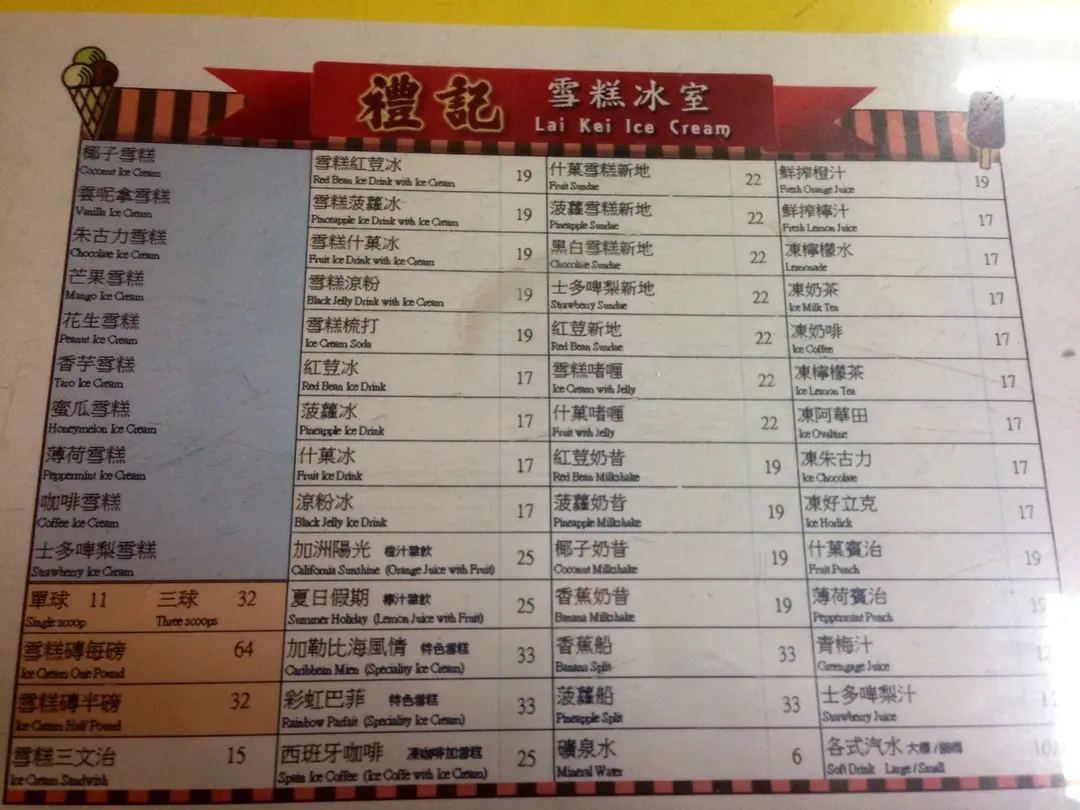 禮記 雪糕冰室
Lai Kei Ice Cream
椰子雪糕
Coconut Ice Cream
雲呢拿雪糕
Vanilla Ice Cream
朱古力雪糕
Chocolate Ice Cream
芒果雪糕
Mango Ice Cream
花生雪糕
Peanut Ice Cream
香芋雪糕
Taro Ice Cream
蜜瓜雪糕
Honeymelon Ice Cream
薄荷雪糕
Peppermint Ice Cream
咖啡雪糕
Coffee Ice Cream
士多啤梨雪糕
Strawberry Ice Cream
單球 11 三球 32
Single scoop Three scoops
雪糕磚每磅 64
Ice Cream One Pound
雪糕磚半磅 32
Ice Cream Half Pound
雪糕三文治 15
Ice Cream Sandwish
雪糕紅荳冰 19
Red Bean Ice Drink with Ice Cream
雪糕菠蘿冰 19
Pineapple Ice Drink with Ice Cream
雪糕什菓冰 19
Fruit Ice Drink with Ice Cream
雪糕涼粉 19
Black Jelly Drink with Ice Cream
雪糕梳打 19
Ice Cream Soda
紅荳冰 17
Red Bean Ice Drink
菠蘿冰 17
Pineapple Ice Drink
什菓冰 17
Fruit Ice Drink
涼粉冰 17
Black Jelly Ice Drink
加洲陽光 橙汁雜飲 25
California Sunshine (Orange Juice with Fruit)
夏日假期 檸汁雜飲 25
Summer Holiday (Lemon Juice with Fruit)
加勒比海風情 特色雪糕 33
Caribbean Mien (Speciality Ice Cream)
彩虹巴菲 特色雪糕 33
Rainbow Parfait (Speciality Ice Cream)
西班牙咖啡 凍咖啡加雪糕 25
Spain Ice Coffee (Ice Coffe with Ice Cream)
什菓雪糕新地 22
Fruit Sundae
菠蘿雪糕新地 22
Pineapple Sundae
黑白雪糕新地 22
Chocolate Sundae
士多啤梨新地 22
Strawberry Sundae
紅荳新地 22
Red Bean Sundae
雪糕啫喱 22
Ice Cream with Jelly
什菓啫喱 22
Fruit with Jelly
紅荳奶昔 19
Red Bean Milkshake
菠蘿奶昔 19
Pineapple Milkshake
椰子奶昔 19
Coconut Milkshake
香蕉奶昔 19
Banana Milkshake
香蕉船 33
Banana Split
菠蘿船 33
Pineapple Split
礦泉水 6
Mineral Water
鮮搾橙汁 19
Fresh Orange Juice
鮮搾檸汁 17
Fresh Lemon Juice
凍檸檬水 17
Lemonade
凍奶茶 17
Ice Milk Tea
凍奶啡 17
Ice Coffee
凍檸檬茶 17
Ice Lemon Tea
凍阿華田 17
Ice Ovaltine
凍朱古力 17
Ice Chocolate
凍好立克 17
Ice Hodick
什菓賓治 19
Fruit Punch
薄荷賓治 19
Peppermint Punch
青梅汁
Greengage Juice
士多啤梨汁
Strawberry Juice
各式汽水
Soft Drink Large / Small